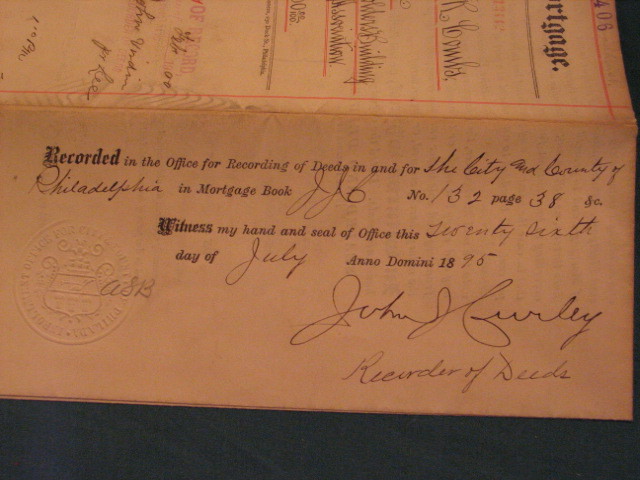 Mortgage.
406
Building
Association
Recorded in the Office for Recording of Deeds in and for the City and County of
Philadelphia in Mortgage Book JJC No. 132 page 38 &c.
Witness my hand and seal of Office this Twenty sixth
day of July Anno Domini 1895
ASB
John J Curley
Recorder of Deeds